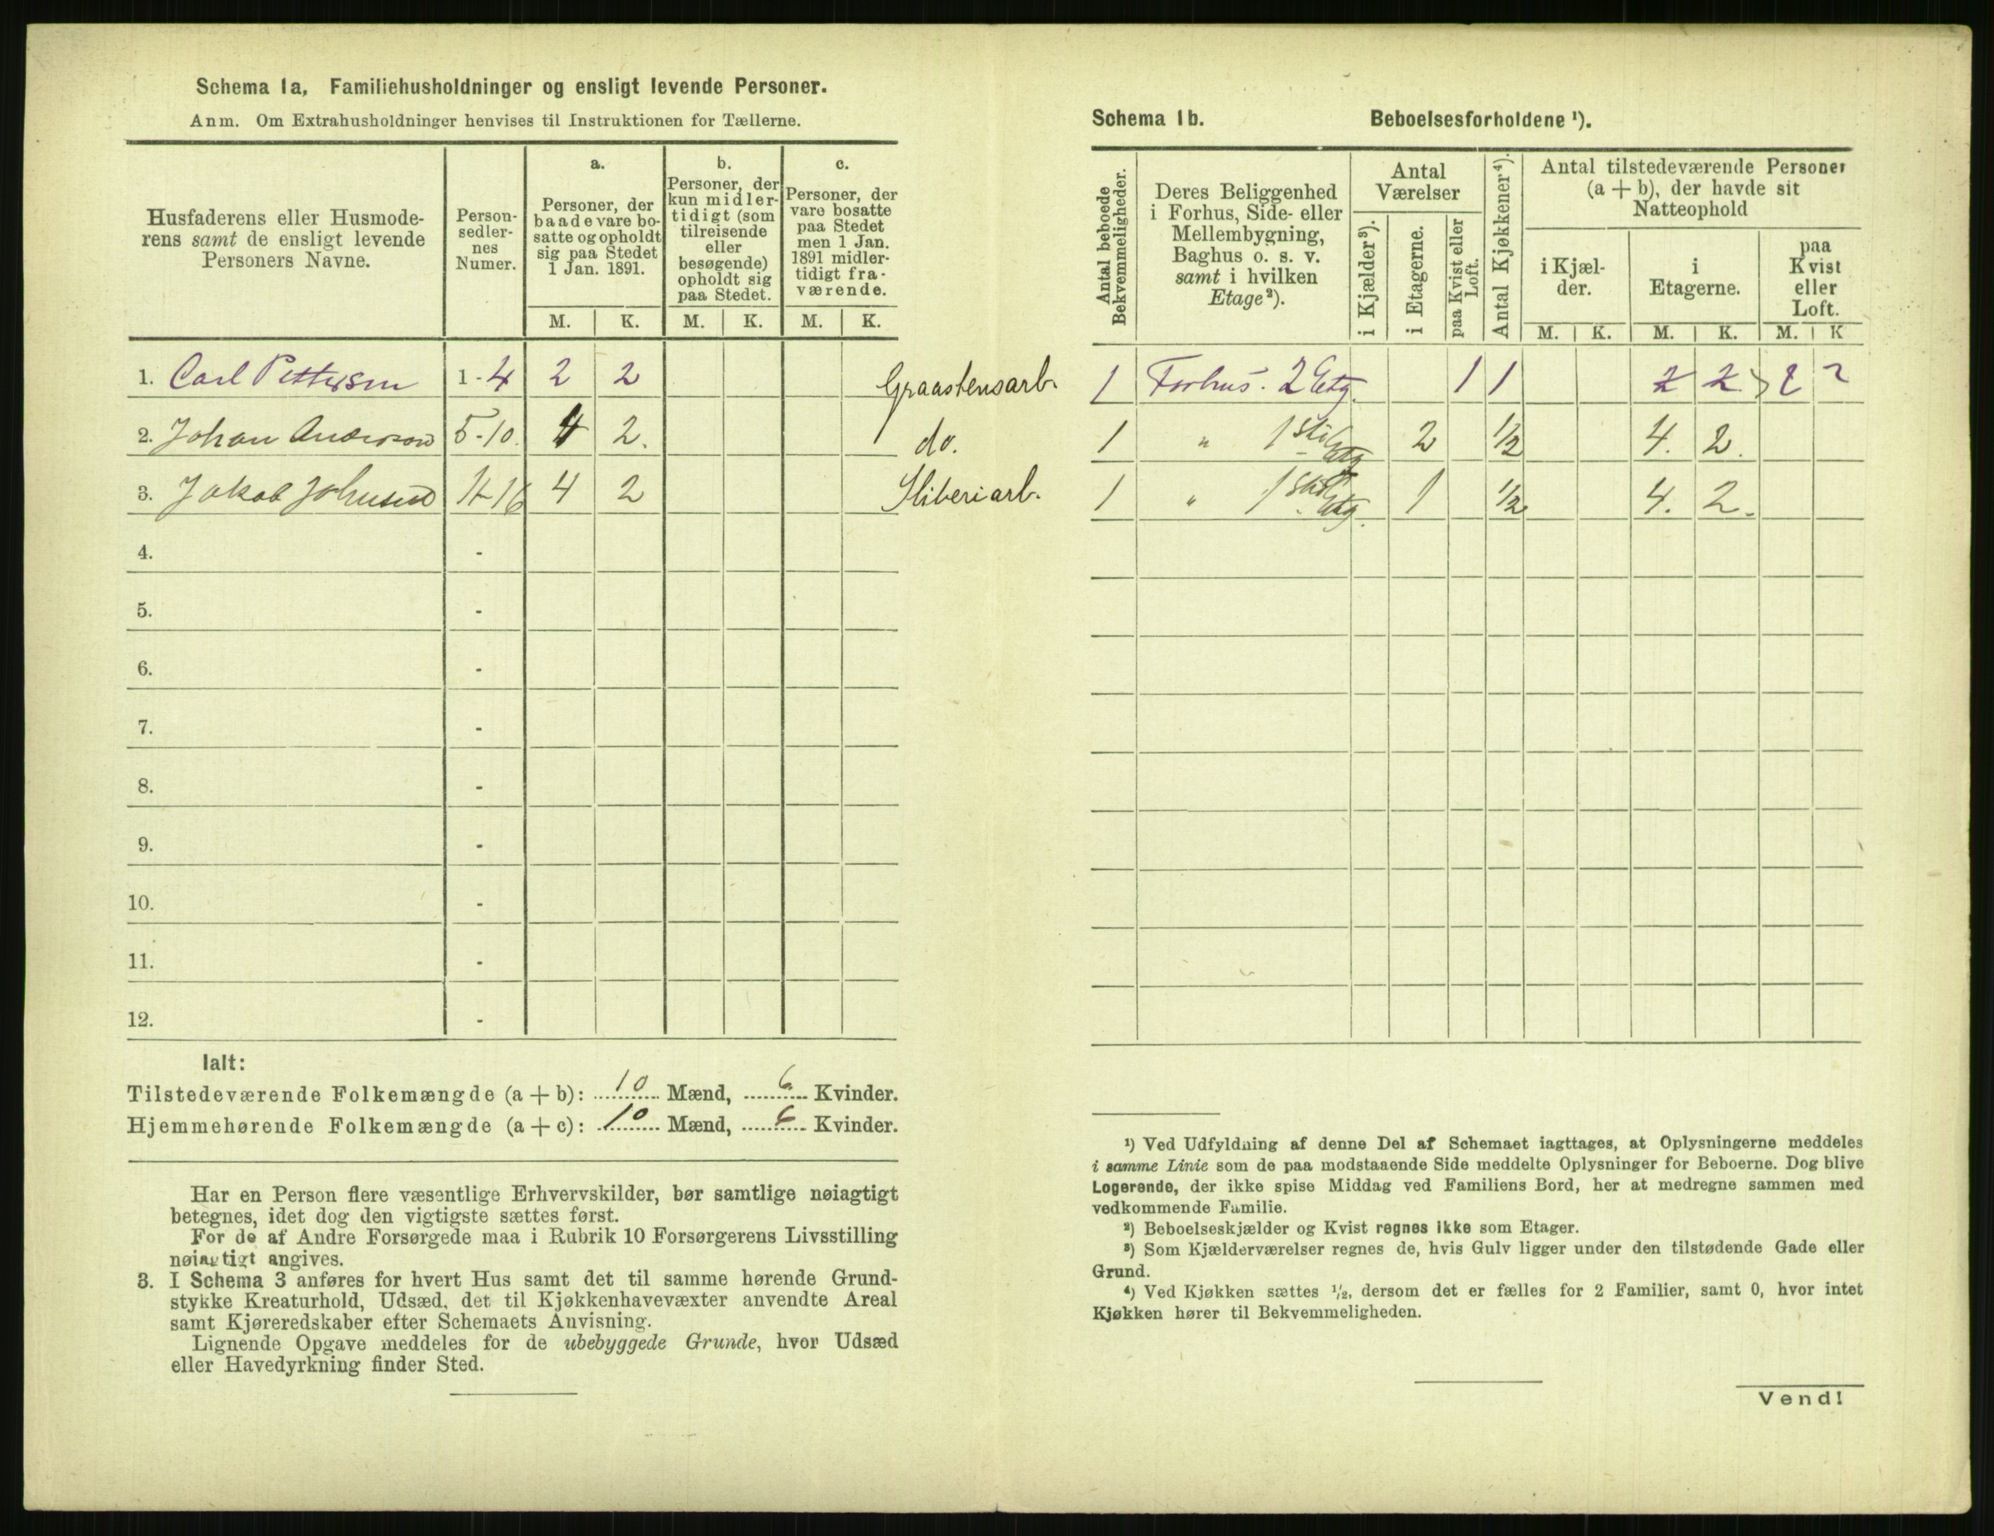 Schema 1a, Familiehusholdninger og ensligt levende Personer.
Anm. Om Extrahusholdninger henvises til Instruktionen for Tællerne.
Husfaderens eller Husmode-
rens samt de ensligt levende
Personers Navne.
Person-
sedler-
nes
Numer.
a.
Personer, der
baade vare bo-
satte og opholdt
sig paa Stedet
1 Jan. 1891.
b.
Personer, der
kun midler-
tidigt (som
tilreisende
eller
besøgende)
opholdt sig
paa Stedet.
c.
Personer, der
vare bosatte
paa Stedet
men 1 Jan.
1891 midler-
tidigt fra-
værende.
M. K. M. K. M. K.
1. Carl Pettersen 1-4 2 2 Graastensarb.
2. Johan Anderson 5-10. 4 2. do.
3. Jakob Johnsen 11-16 4 2 Sliberiarb.
4. -
5. -
6. -
7. -
8. -
9. -
10. -
11. -
12. -
Ialt:
Tilstedeværende Folkemængde (a + b): 10 Mænd, 6 Kvinder.
Hjemmehørende Folkemængde (a + c): 10 Mænd, 6 Kvinder.
Har en Person flere væsentlige Erhvervskilder, bør samtlige nøiagtigt
betegnes, idet dog den vigtigste sættes først.
For de af Andre Forsørgede maa i Rubrik 10 Forsørgerens Livsstilling
nøiagtigt angives.
3. I Schema 3 anføres for hvert Hus samt det til samme hørende Grund-
stykke Kreaturhold, Udsæd, det til Kjøkkenhavevæxter anvendte Areal
samt Kjøreredskaber efter Schemaets Anvisning.
Lignende Opgave meddeles for de ubebyggede Grunde, hvor Udsæd
eller Havedyrkning finder Sted.
Schema 1b. Beboelsesforholdene ¹).
Antal beboede
Bekvemmeligheder.
Deres Beliggenhed
i Forhus, Side- eller
Mellembygning,
Baghus o. s. v.
samt i hvilken
Etage²).
Antal
Værelser
i Kjælder³).
i Etagerne.
paa Kvist eller
Loft.
Antal Kjøkkener⁴).
Antal tilstedeværende Personer
(a + b), der havde sit
Natteophold
i Kjæl-
der.
i
Etagerne.
paa
Kvist
eller
Loft.
M. K. M. K. M. K
1 Forhus. 2 Etg. 1 1 2 2 2 2
1 " 1 Etg 2 1/2 4. 2.
1 " 1 Etg. 1 1/2 4. 2.
¹) Ved Udfyldning af denne Del af Schemaet iagttages, at Oplysningerne meddeles
i samme Linie som de paa modstaaende Side meddelte Oplysninger for Beboerne. Dog blive
Logerende, der ikke spise Middag ved Familiens Bord, her at medregne sammen med
vedkommende Familie.
²) Beboelseskjælder og Kvist regnes ikke som Etager.
³) Som Kjælderværelser regnes de, hvis Gulv ligger under den tilstødende Gade eller
Grund.
⁴) Ved Kjøkken sættes ½, dersom det er fælles for 2 Familier, samt 0, hvor intet
Kjøkken hører til Bekvemmeligheden.
Vend!